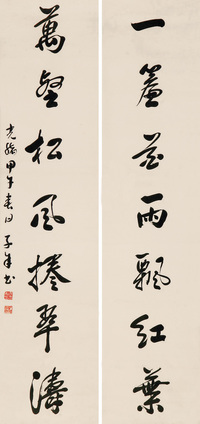 一簾花雨飄紅葉
萬壑松風捲翠濤
光緒甲午春日 子年書